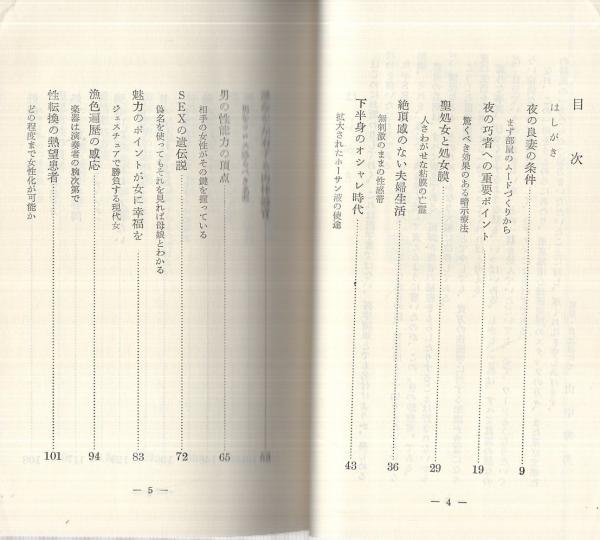 目次
はしがき
夜の良妻の条件 9
まず部屋のムードづくりから
夜の巧者への重要ポイント 19
驚くべき効果のある暗示療法
聖処女と処女膜 29
人さわがせな粘膜の亡霊
絶頂感のない夫婦生活 36
無刺激のままの性感帯
下半身のオシャレ時代 43
拡大されたホーサン液の使途
— 4 —
男の性能力の頂点 65
相手の女性がその鍵を握っている
SEXの遺伝説 72
偽名を使ってもそれを見れば母娘とわかる
魅力のポイントが女に幸福を 83
ジェスチュアで勝負する現代女
漁色遍歴の感応 94
楽器は演奏者の腕次第で
性転換の熱望患者 101
どの程度まで女性化が可能か
— 5 —